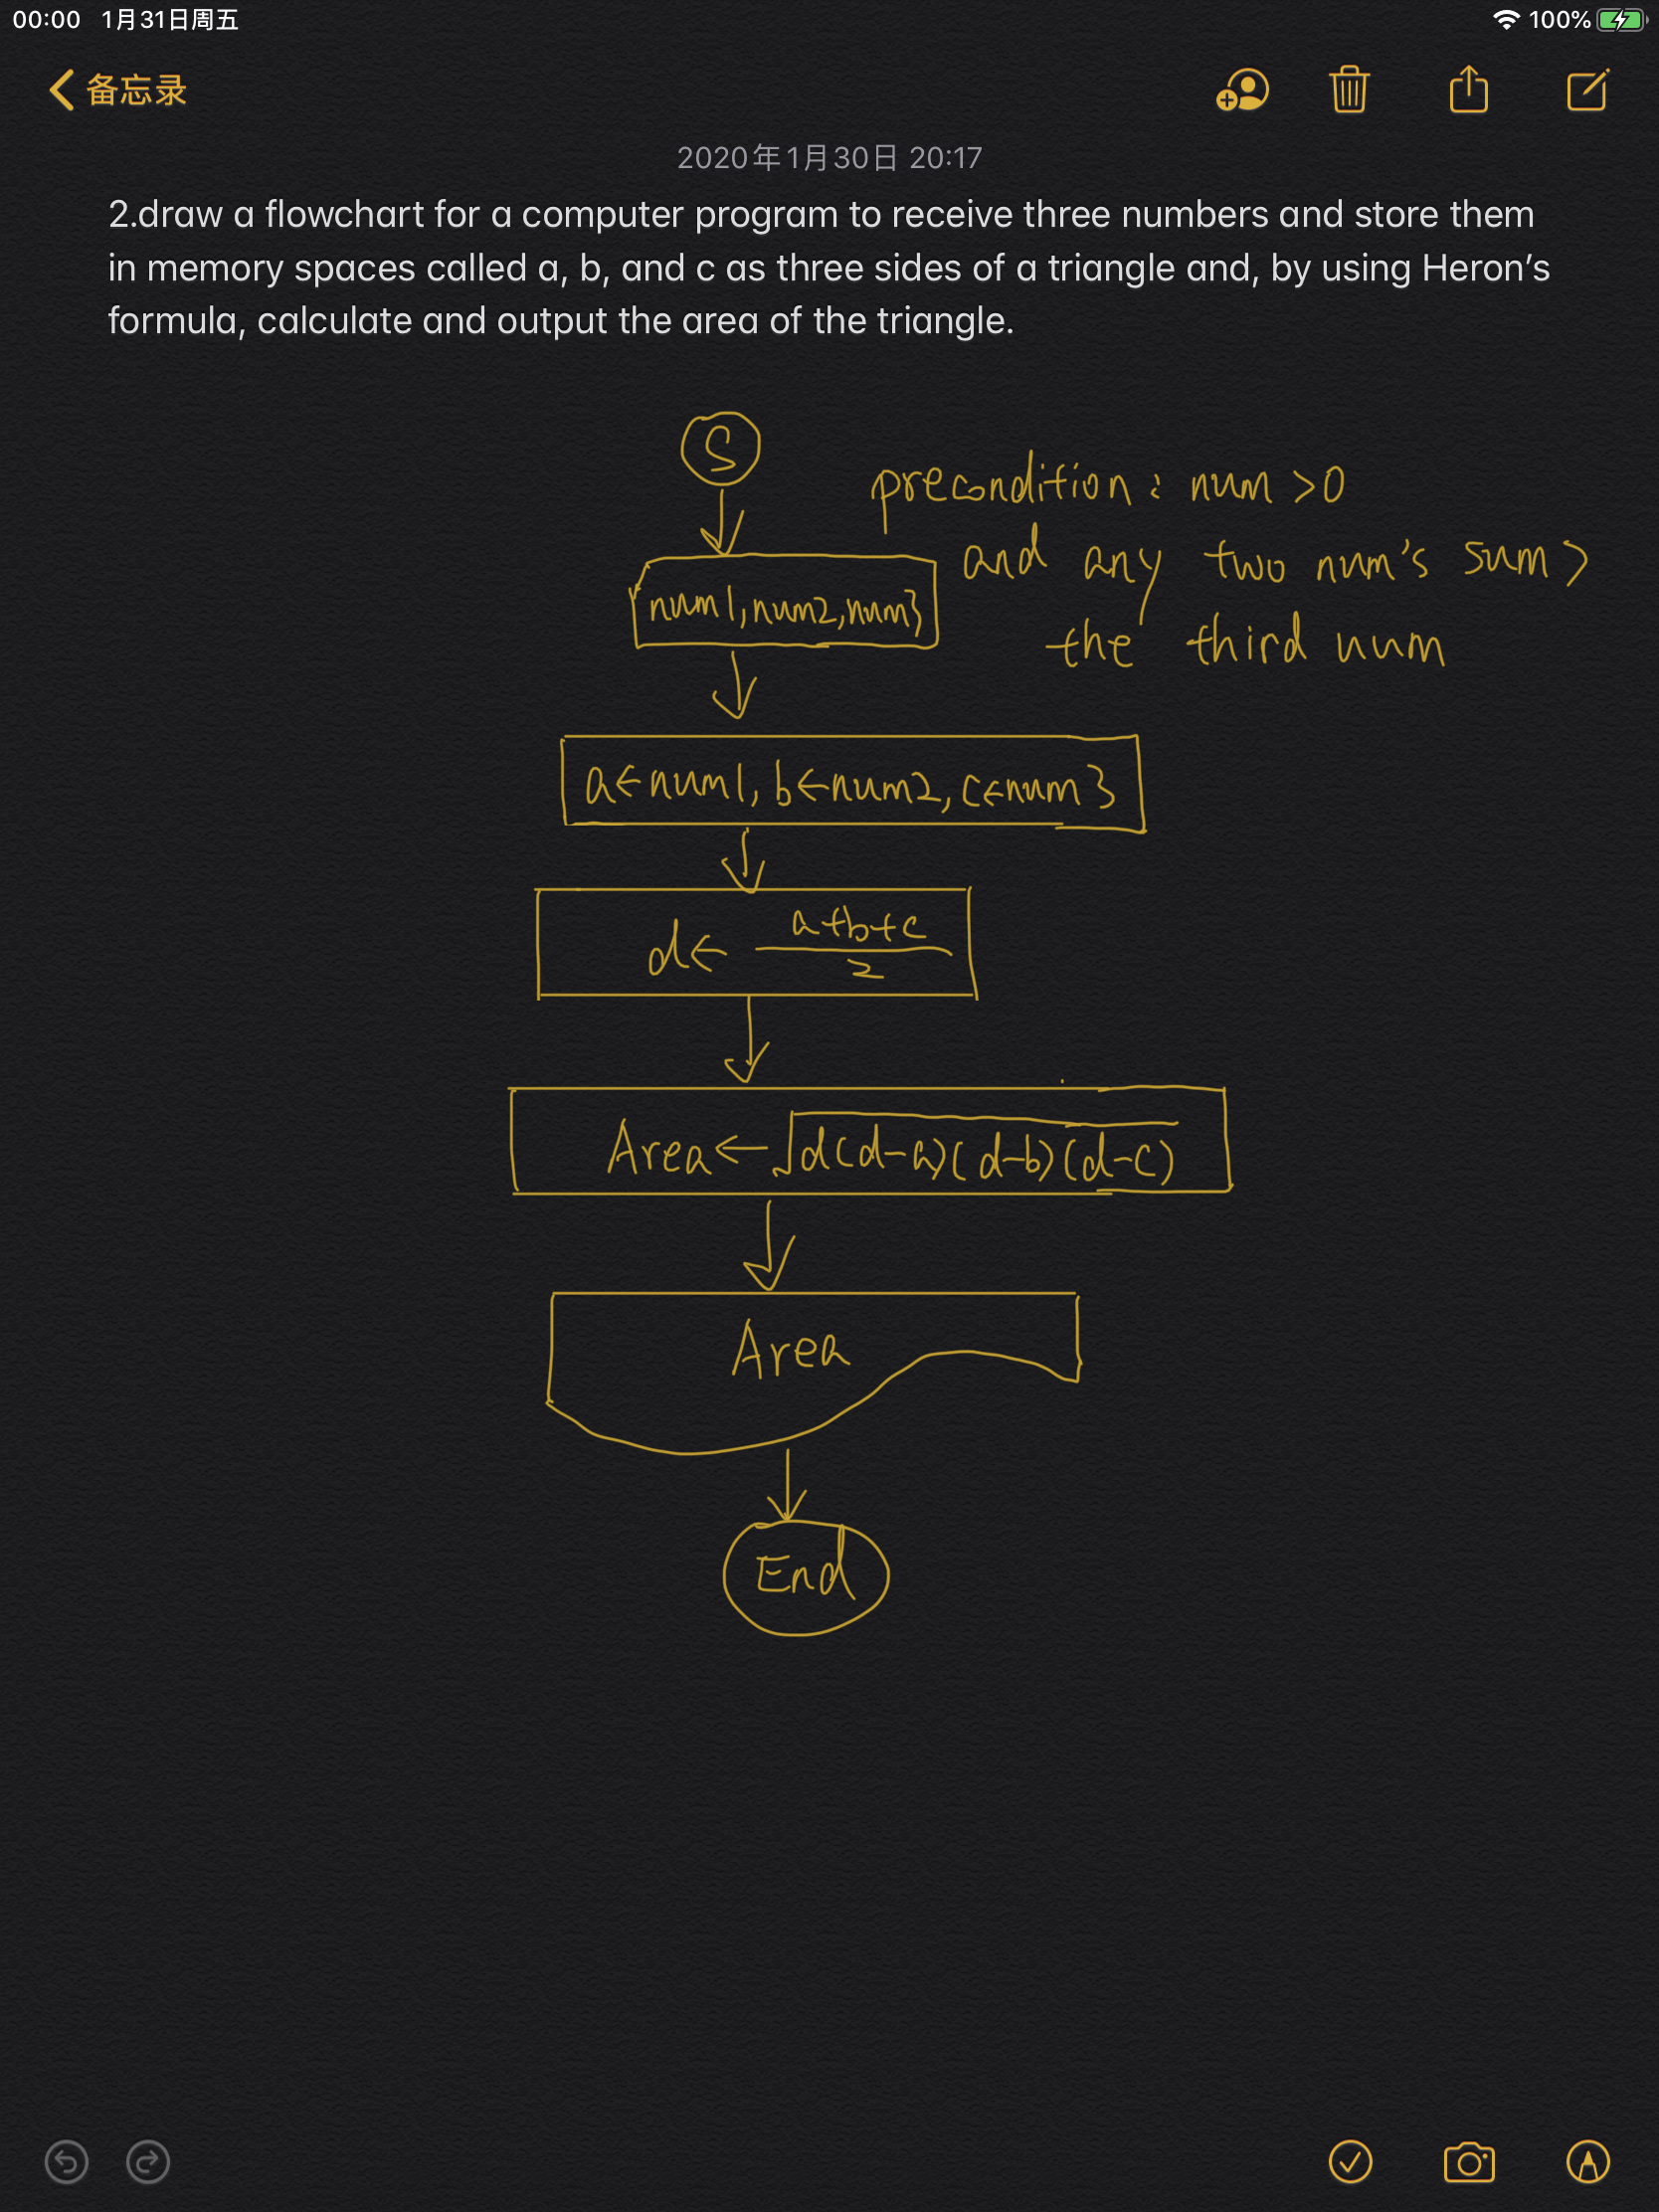 00:00 1月31日周五
100%
备忘录
2020年1月30日 20:17
2.draw a flowchart for a computer program to receive three numbers and store them
in memory spaces called a, b, and c as three sides of a triangle and, by using Heron’s
formula, calculate and output the area of the triangle.
S
precondition: num >0
and any two num's sum >
the third num
num1, num2, num3
a←num1, b←num2, c←num3
d← (a+b+c)/2
Area←√d(d-a)(d-b)(d-c)
Area
End